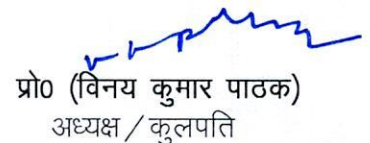 प्रो0 (विनय कुमार पाठक)
अध्यक्ष / कुलपति